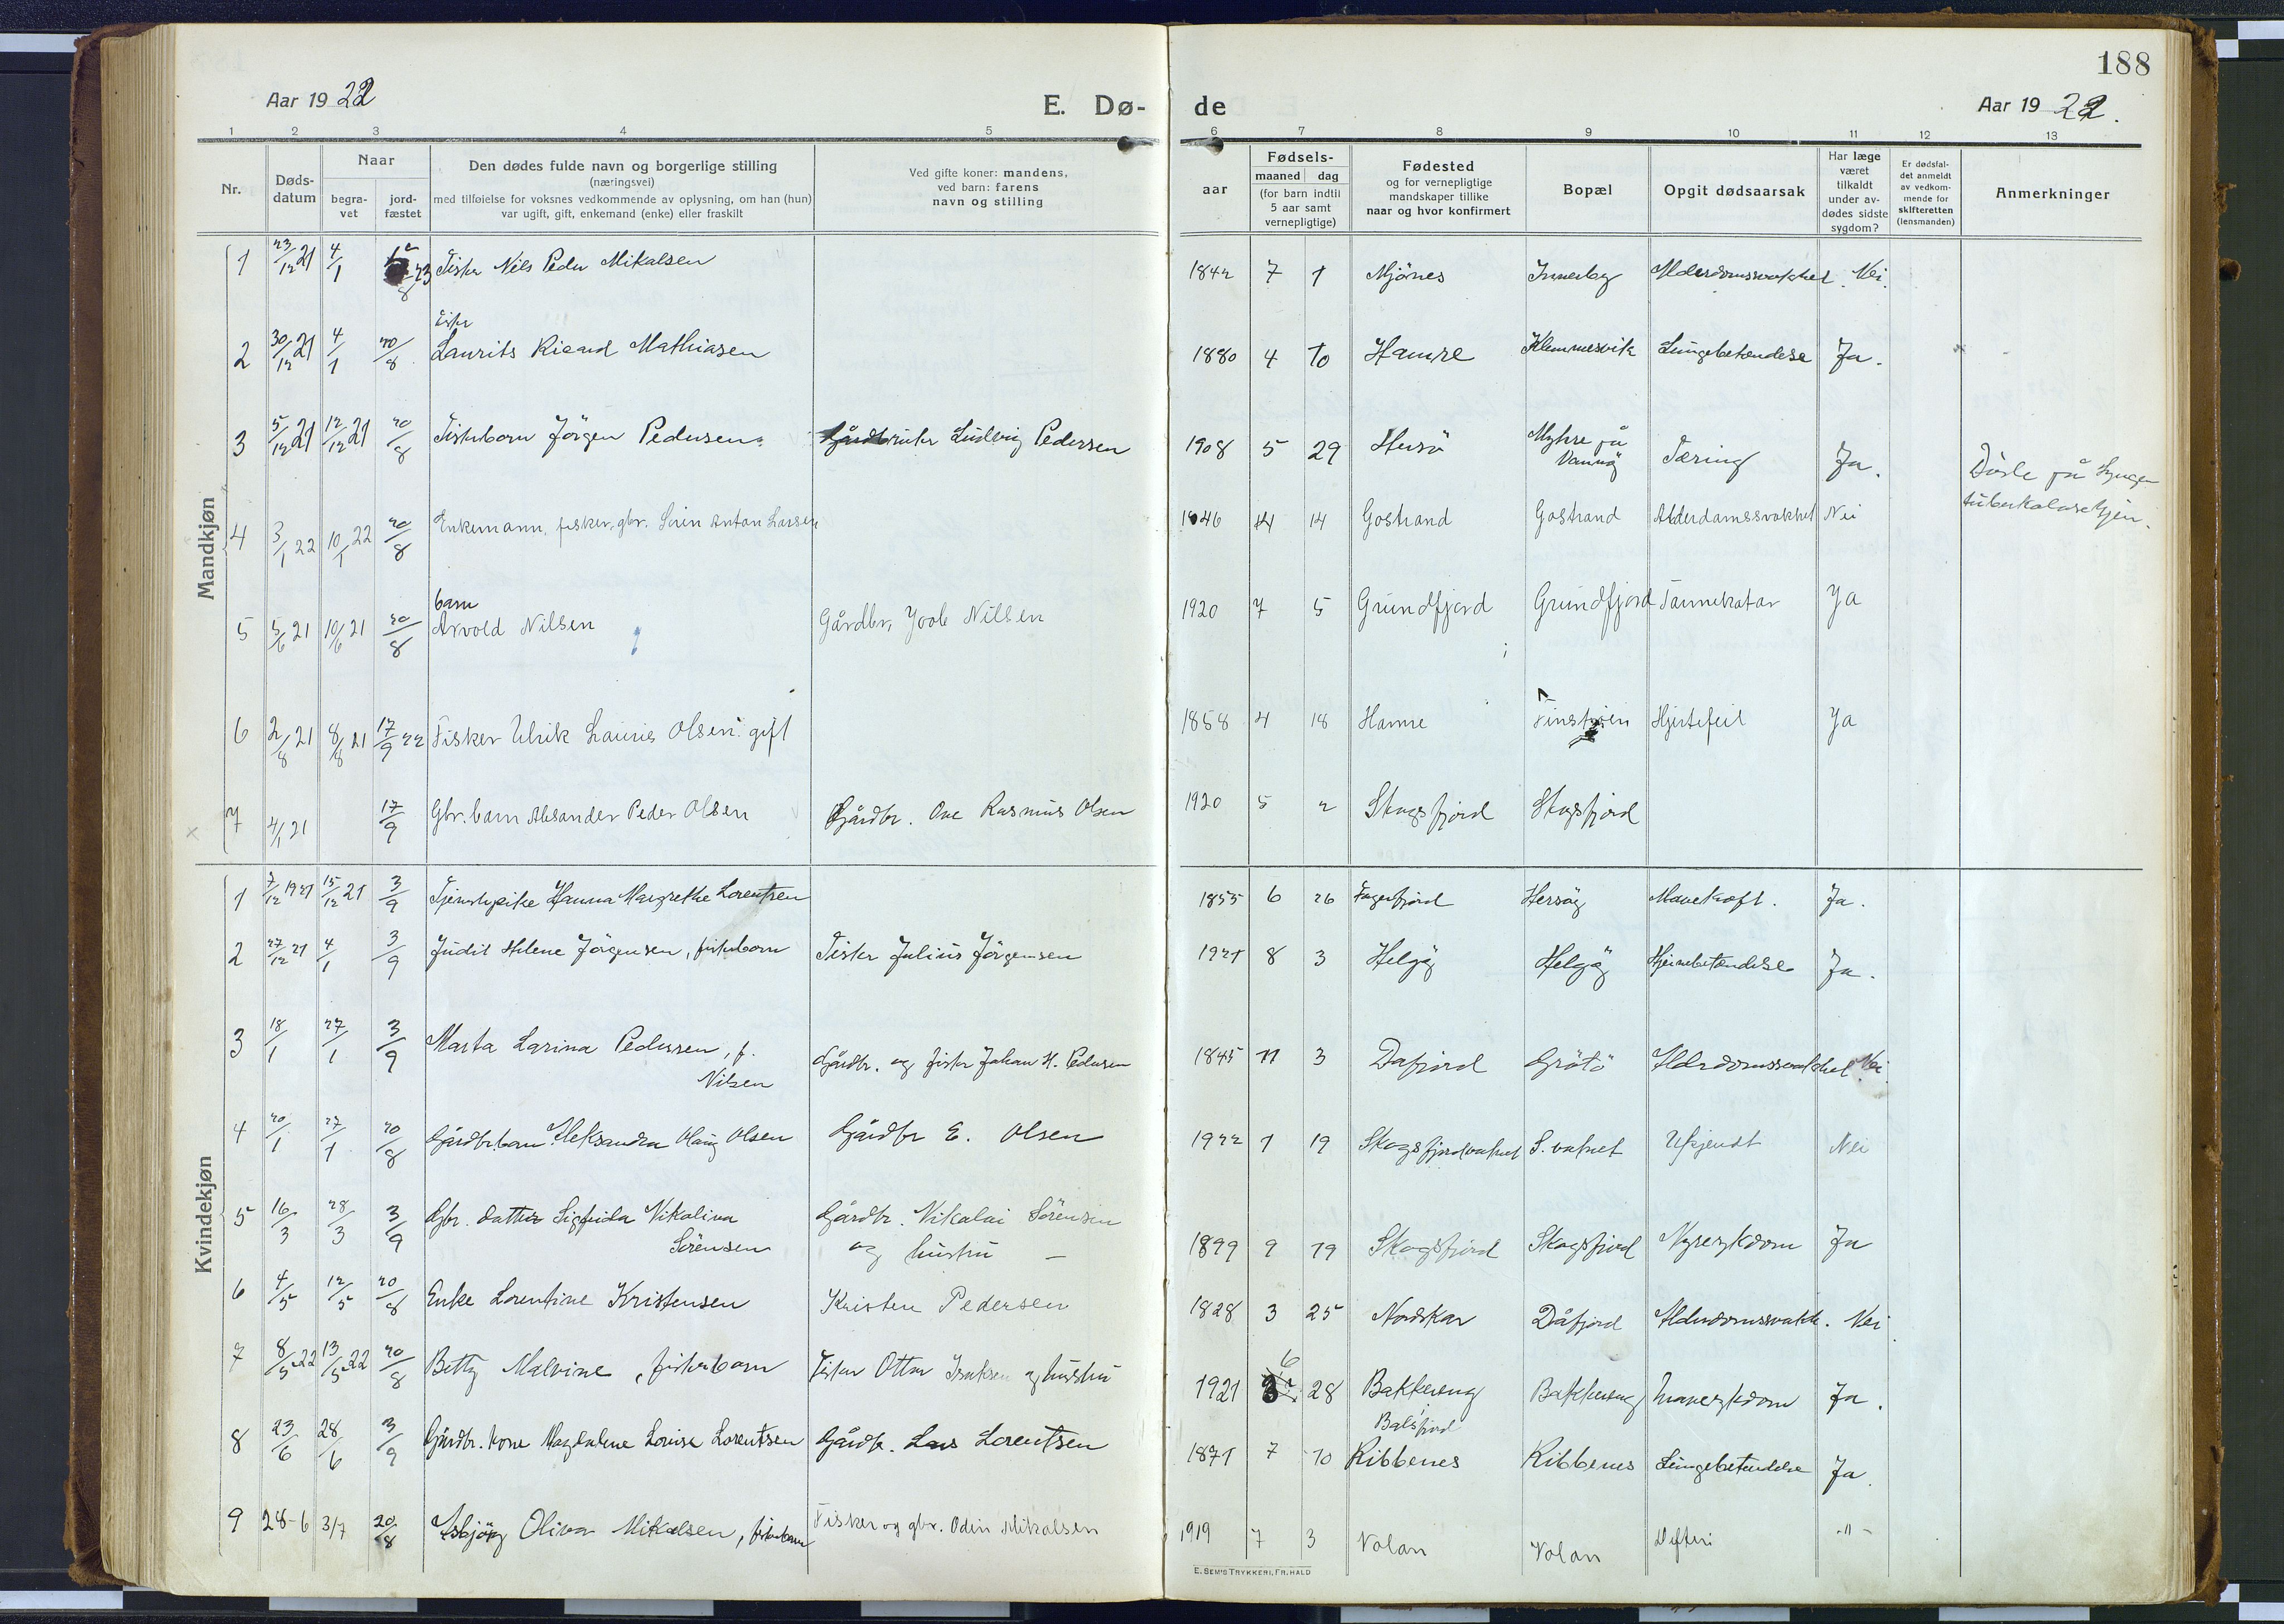 188
Aar 1922
E. Dø-
de
Aar 1922.
1 2 3 4 5
6 7 8 9 10 11 12 13
Nr.
Døds-
datum
Naar
begra-
vet
jord-
fæstet
Den dødes fulde navn og borgerlige stilling
(næringsvei)
med tilføielse for voksnes vedkommende av oplysning, om han (hun)
var ugift, gift, enkemand (enke) eller fraskilt
Ved gifte koner: mandens,
ved barn: farens
navn og stilling
Fødsels-
aar
maaned dag
(for barn indtil
5 aar samt
vernepligtige)
Fødested
og for vernepligtige
mandskaper tillike
naar og hvor konfirmert
Bopæl
Opgit dødsaarsak
Har læge
været
tilkaldt
under av-
dødes sidste
sygdom?
Er dødsfal-
det anmeldt
av vedkom-
mende for
skifteretten
(lensmanden)
Anmerkninger
Mandkjøn
1 23/12 21 4/1 Fisker Nils Peder Mikalsen 1842 7 1 Mjönes Innerby Alderdomssvakhet. Nei.
Fisker
2 30/12 21 4/1 20/8 Laurits Ricard Mathiasen 1880 4 10 Hamre Klemmesvik Lungebetændelse Ja.
3 5/12 21 12/12 21 20/8 Fiskerbarn Jörgen Pedersen Gårdbruker Ludvig Pedersen 1908 5 29 Hersö Myhre på Vannöy Tæring Ja.
Döde på Lyngen
tuberkulosehjem.
4 3/1 22 10/1 22 20/8 Enkemann, fisker, gbr. Sören Anton Larsen 1846 4 14 Gostrand Gostrand Alderdamssvakhet Nei
barn
5 5/6 21 10/6 21 20/8 Arvold Nilsen Gårdbr, Joob Nilsen 1920 7 5 Grundfjord Grundfjord Tarmekatar Ja
6 2/8 21 8/8 21 17/9 22 Fisker Ulrik Lauris Olsen gift 1858 4 18 Hamre Hjertefeil Ja
7 4/1 21 17/9 Gbr. barn Alesander Peder Olsen Gårdbr. Ove Rasmus Olsen 1920 5 2 Skogsfjord Skogsfjord
Kvindekjøn
1 7/12 1921 15/12 21 3/9 Tjenstepike Hanna Margrethe Lorentzen 1855 6 26 Fagerfjord Hersöy Mavekræft. Ja.
2 27/12 21 4/1 3/9 Judit Helene Jörgensen, fiskerbarn Fisker Julius Jörgensen 1921 8 3 Helgöy Helgöy Hjernebetændelse Ja.
3 18/1 27/1 3/9 Marta Larina Pedersen, f.
Nilsen
Gårdbr. og fisker Johan H. Pedersen 1845 11 3 Dafjord Grötö Alderdomssvakhet Nei.
4 20/1 27/1 20/8 Gårdbr.barn Aleksandra Olaug Olsen Gårdbr E. Olsen 1922 1 19 Skogsfjordvatnet S. vatnet Ukjendt Nei
5 16/3 28/3 3/9 Gbr. datter Sigfrida Nikoliva
Sörensen
Gårdbr. Nikolai Sörensen
og hustru —
1899 9 19 Skogsfjord Skogsfjord Nyresykdom Ja
6 4/5 12/5 20/8 Enke Lorentine Kristensen Kristen Pedersen 1828 3 25 Nordskar Dåfjord Alderdomssvakh. Nei.
7 8/5 22 13/5 22 20/8 Betty Malvine, fiskerbarn Fisker Ottar Isaksen og hustru 1921 6 28 Bakkeeng Bakkeeng Mavesykdom Ja.
Balsfjord
8 23/6 28/6 3/9 Gårdbr. kone Magdalene Lovise Lorentsen Gårdbr. Lars Lorentsen 1871 7 10 Ribbenes Ribbenes Lungebetændelse Ja.
9 28-6 3/7 20/8 Asbjörg Oliva Mikalsen, fiskerbarn Fisker og gbr. Odin Mikalsen 1919 7 3 Volan Volan Difteri -"-
E. SEM'S TRYKKERI, FR.HALD